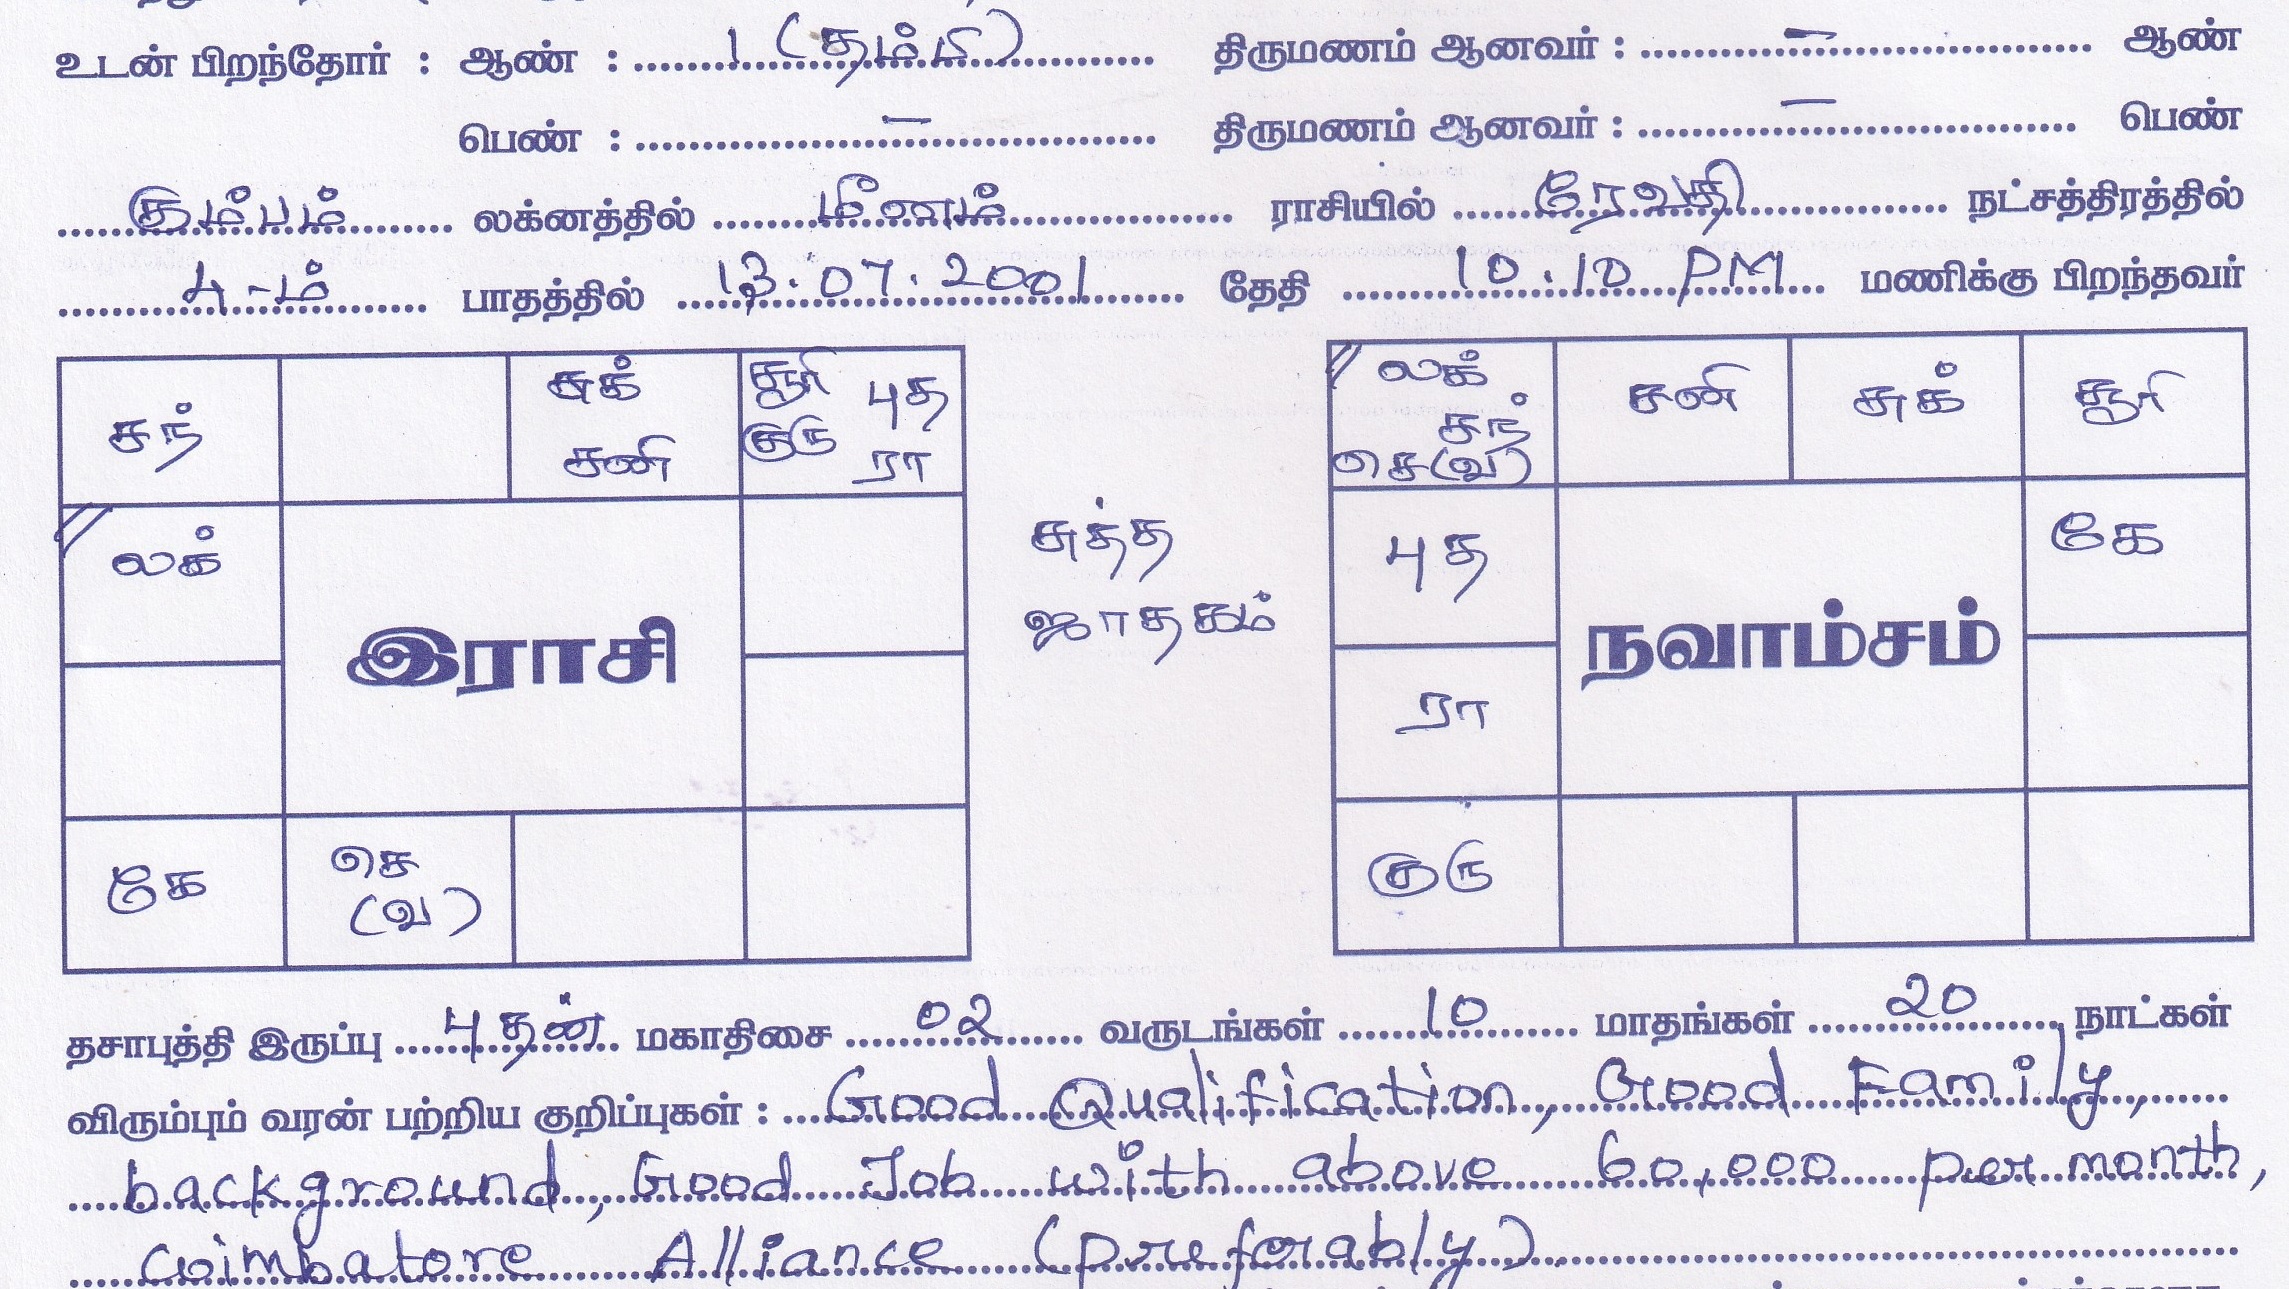 உடன் பிறந்தோர் : ஆண் : 1 (தம்பி) திருமணம் ஆனவர் : — ஆண்
பெண் : — திருமணம் ஆனவர் : — பெண்
கும்பம் லக்னத்தில் மீனம் ராசியில் ரேவதி நட்சத்திரத்தில்
4-ம் பாதத்தில் 13.07.2001 தேதி 10.10 PM மணிக்கு பிறந்தவர்
சந்
சுக்
சனி
சூரி புத
குரு ரா
லக்
இராசி
கே
செ
(வ)
சுத்த
ஜாதகம்
லக்
சந்
செ(வ)
சனி
சுக்
சூரி
புத
கே
நவாம்சம்
ரா
குரு
தசாபுத்தி இருப்பு புதன் மகாதிசை 02 வருடங்கள் 10 மாதங்கள் 20 நாட்கள்
விரும்பும் வரன் பற்றிய குறிப்புகள் : Good Qualification, Good Family,
background, Good Job with above 60,000 per month,
Coimbatore Alliance (preferably)